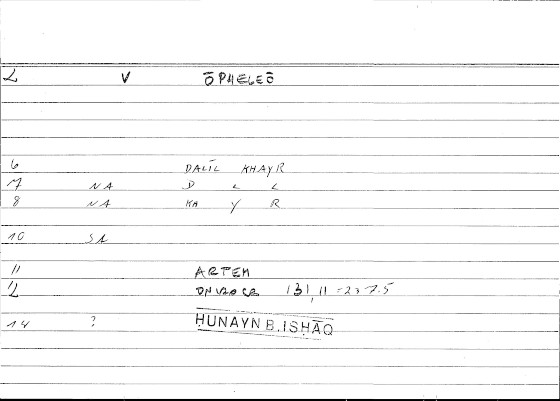 2 V ŌPHELEŌ
6 DALĪL KHAYR
7 NA D L L
8 NA KH Y R
10 SA
11 ARTEM
12 ONIROCR 131,11 = 237.5
14 ? ḤUNAYN B. ISḤĀQ